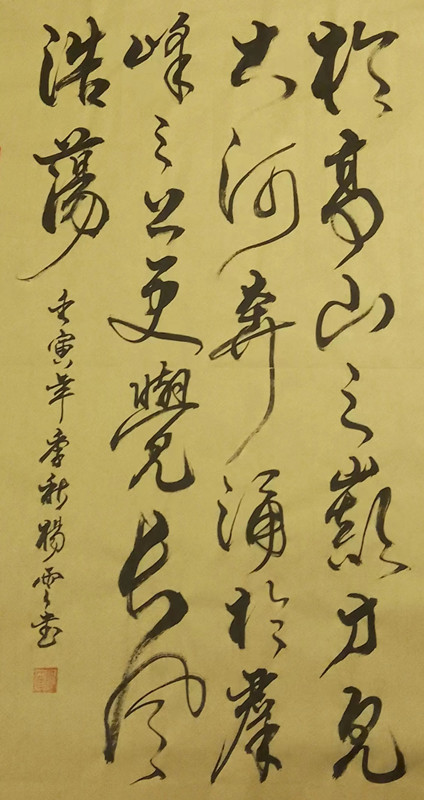 於高山之巔方見
大河奔涌於羣
峰之上更覺長風
浩蕩
壬寅年季秋楊雲書